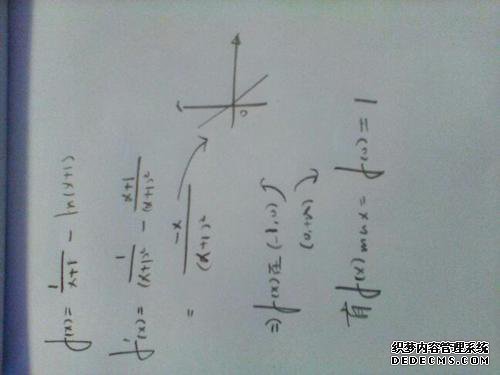 f(x) = 1/(x+1) - ln(x+1)
f'(x) = 1/(x+1)² - (x+1)/(x+1)²
= -x/(x+1)²
0
⇒ f(x)在(-1,0)↗
(0,+∞)↘
有 f(x)max = f(0) = 1
织梦内容管理系统
DEDECMS.COM